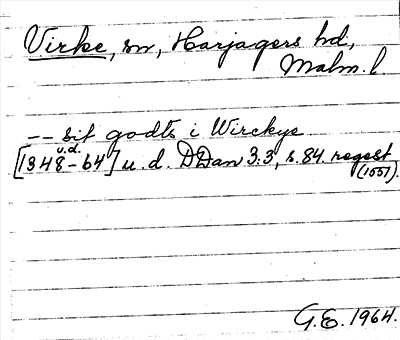 Virke, sn, Harjagers hd,
Malm. l.
-- sit godts i Wirckye
[1348 u.d. - 64] u. d. DDan 3.3, s. 84. regest
(1551)
G.E. 1964.